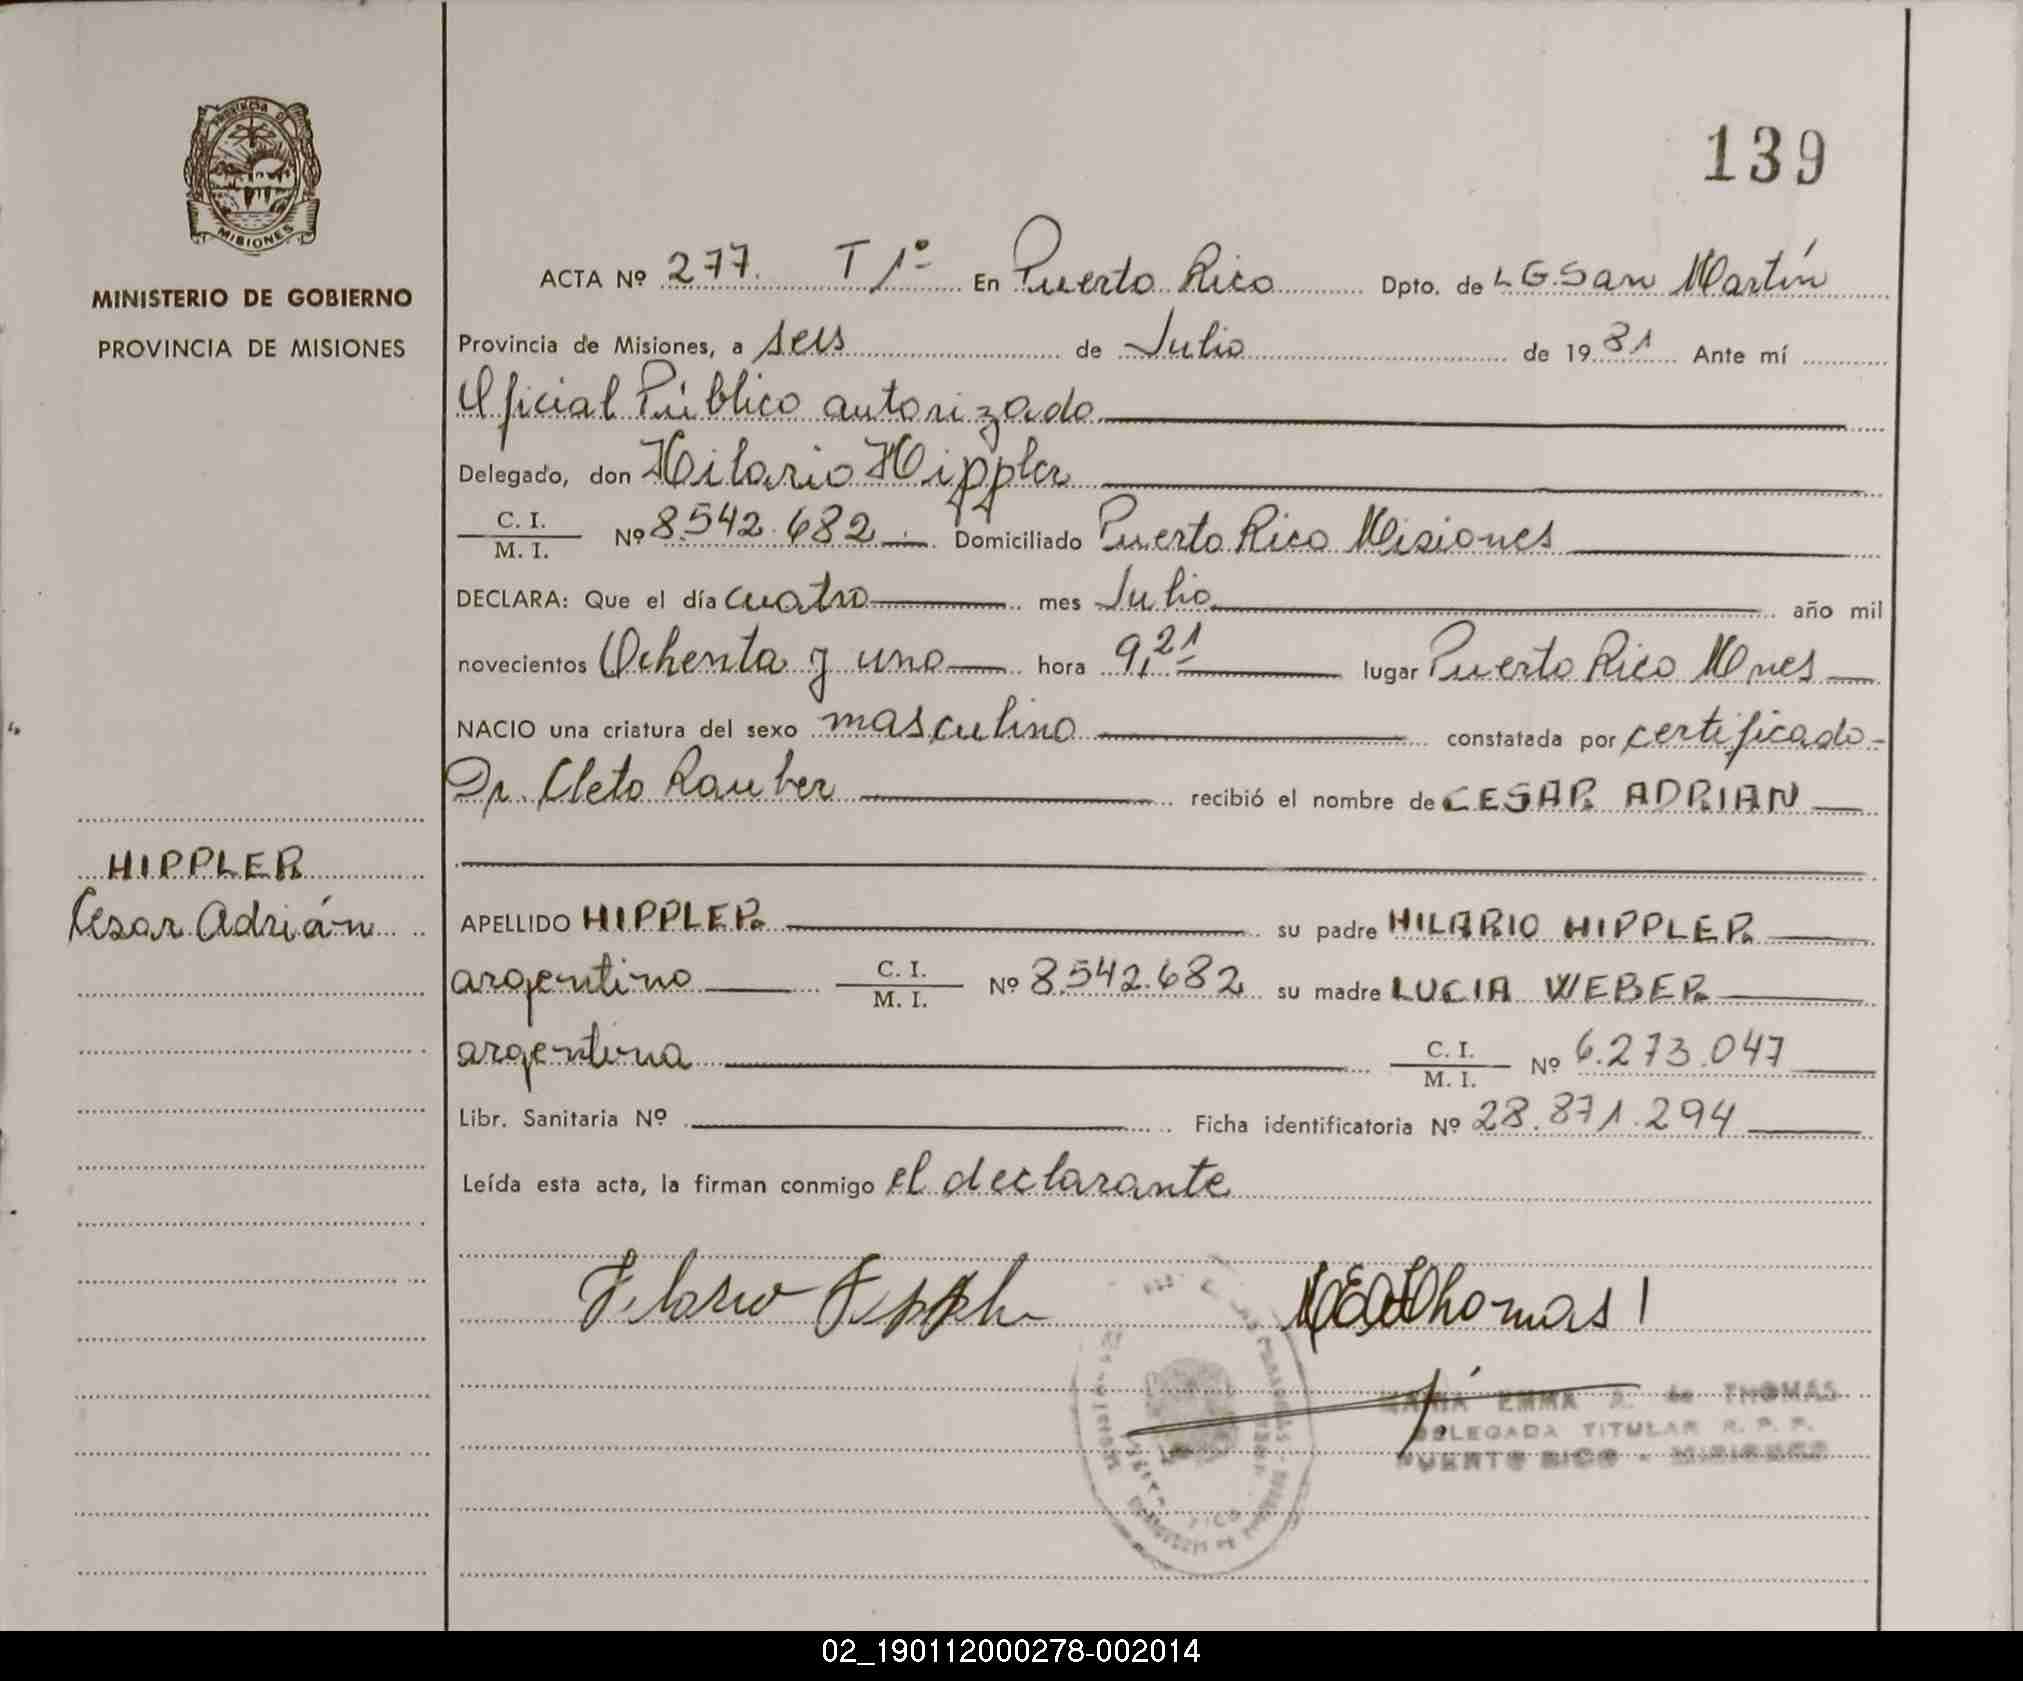 PROVINCIA DE
MISIONES
MINISTERIO DE GOBIERNO
PROVINCIA DE MISIONES
HIPPLER
Cesar Adrián
139
ACTA Nº 277. T 1º En Puerto Rico Dpto. de LG.San Martín
Provincia de Misiones, a seis de Julio de 1981 Ante mí
Oficial Público autorizado
Delegado, don Hilario Hippler
C. I.
M. I. Nº 8.542.682 Domiciliado Puerto Rico Misiones
DECLARA: Que el día cuatro mes Julio año mil
novecientos Ochenta y uno hora 9,21 lugar Puerto Rico Mnes
NACIO una criatura del sexo masculino constatada por certificado
Dr. Cleto Rauber recibió el nombre de CESAR ADRIAN
APELLIDO HIPPLER su padre HILARIO HIPPLER
argentino C. I.
M. I. Nº 8.542.682 su madre LUCIA WEBER
argentina C. I.
M. I. Nº 6.273.047
Libr. Sanitaria Nº Ficha identificatoria Nº 28.871.294
Leída esta acta, la firman conmigo el declarante
Hilario Hippler Thomas
MARIA EMMA de THOMAS
DELEGADA TITULAR R. P. P.
PUERTO RICO - MISIONES
02_190112000278-002014